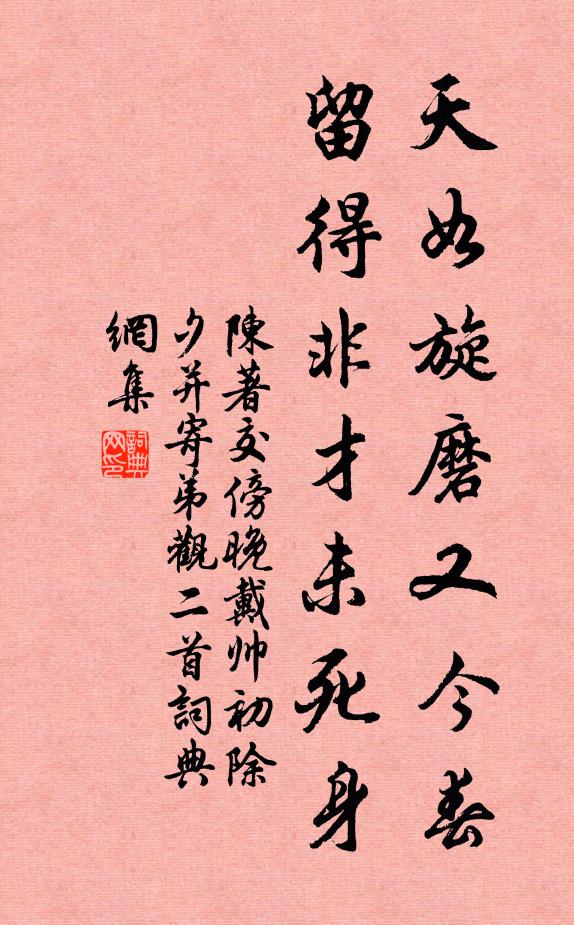 天如旋磨又今春
留得非才未死身
陳著交傍晚戴帅初除
夕并寄弟觀二首詞典
網集
詞典網印